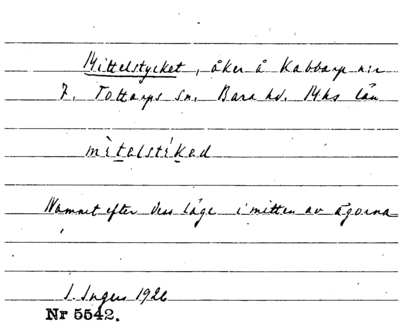 Mittelstycket, åker å Kabbarp n:r
7. Tottarps sn. Bara hd. Mhs län
mìtəlstíkəd
Namnet efter dess läge i mitten av ägorna
I. Ingers 1926
Nr 5542.